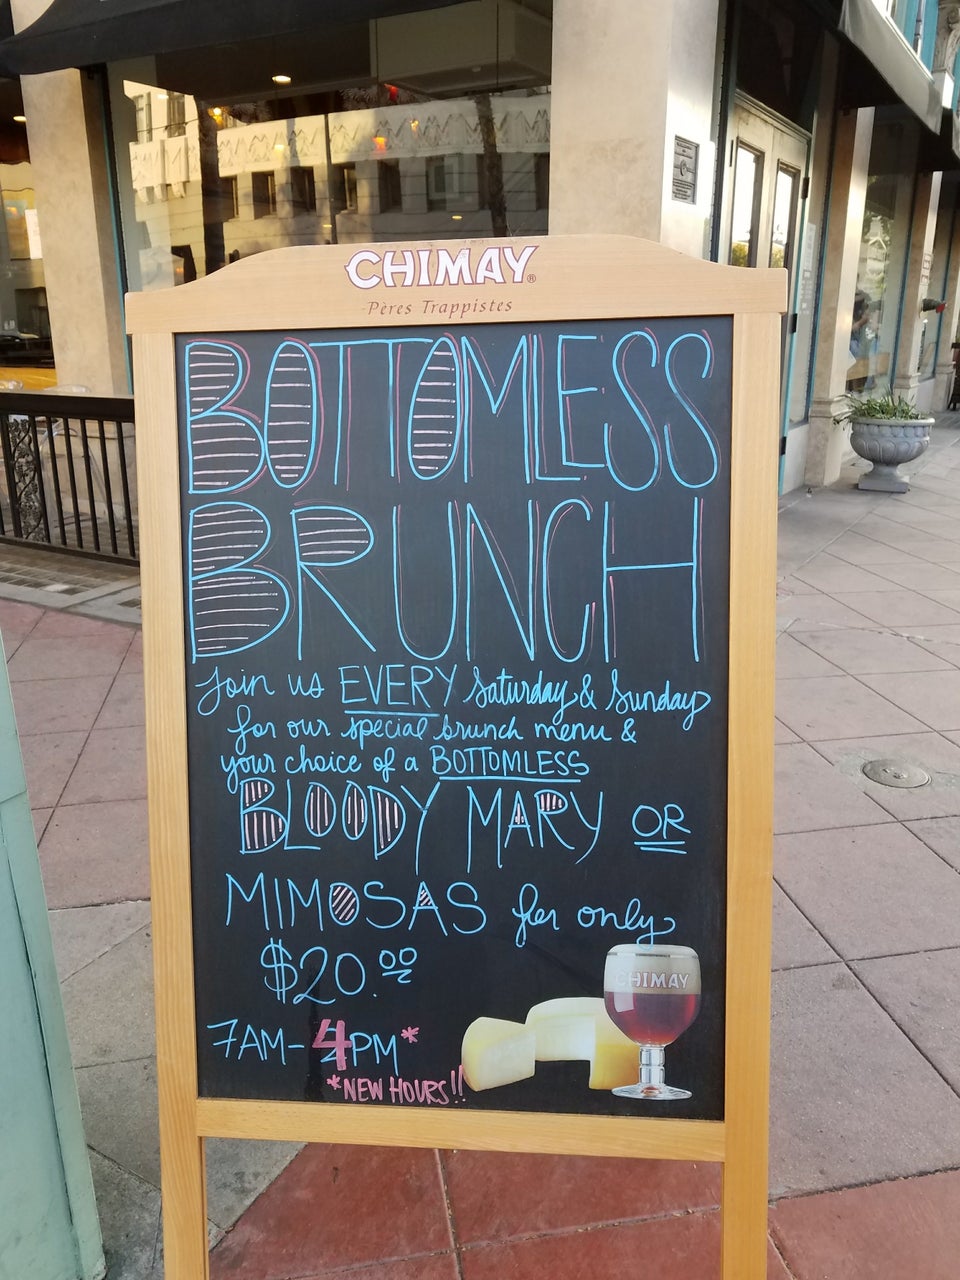 CHIMAY®
Pères Trappistes
BOTTOMLESS
BRUNCH
Join us EVERY Saturday & Sunday
for our special brunch menu &
your choice of a BOTTOMLESS
BLOODY MARY OR
MIMOSAS for only
$20.00
CHIMAY
7AM-4PM*
*NEW HOURS!!